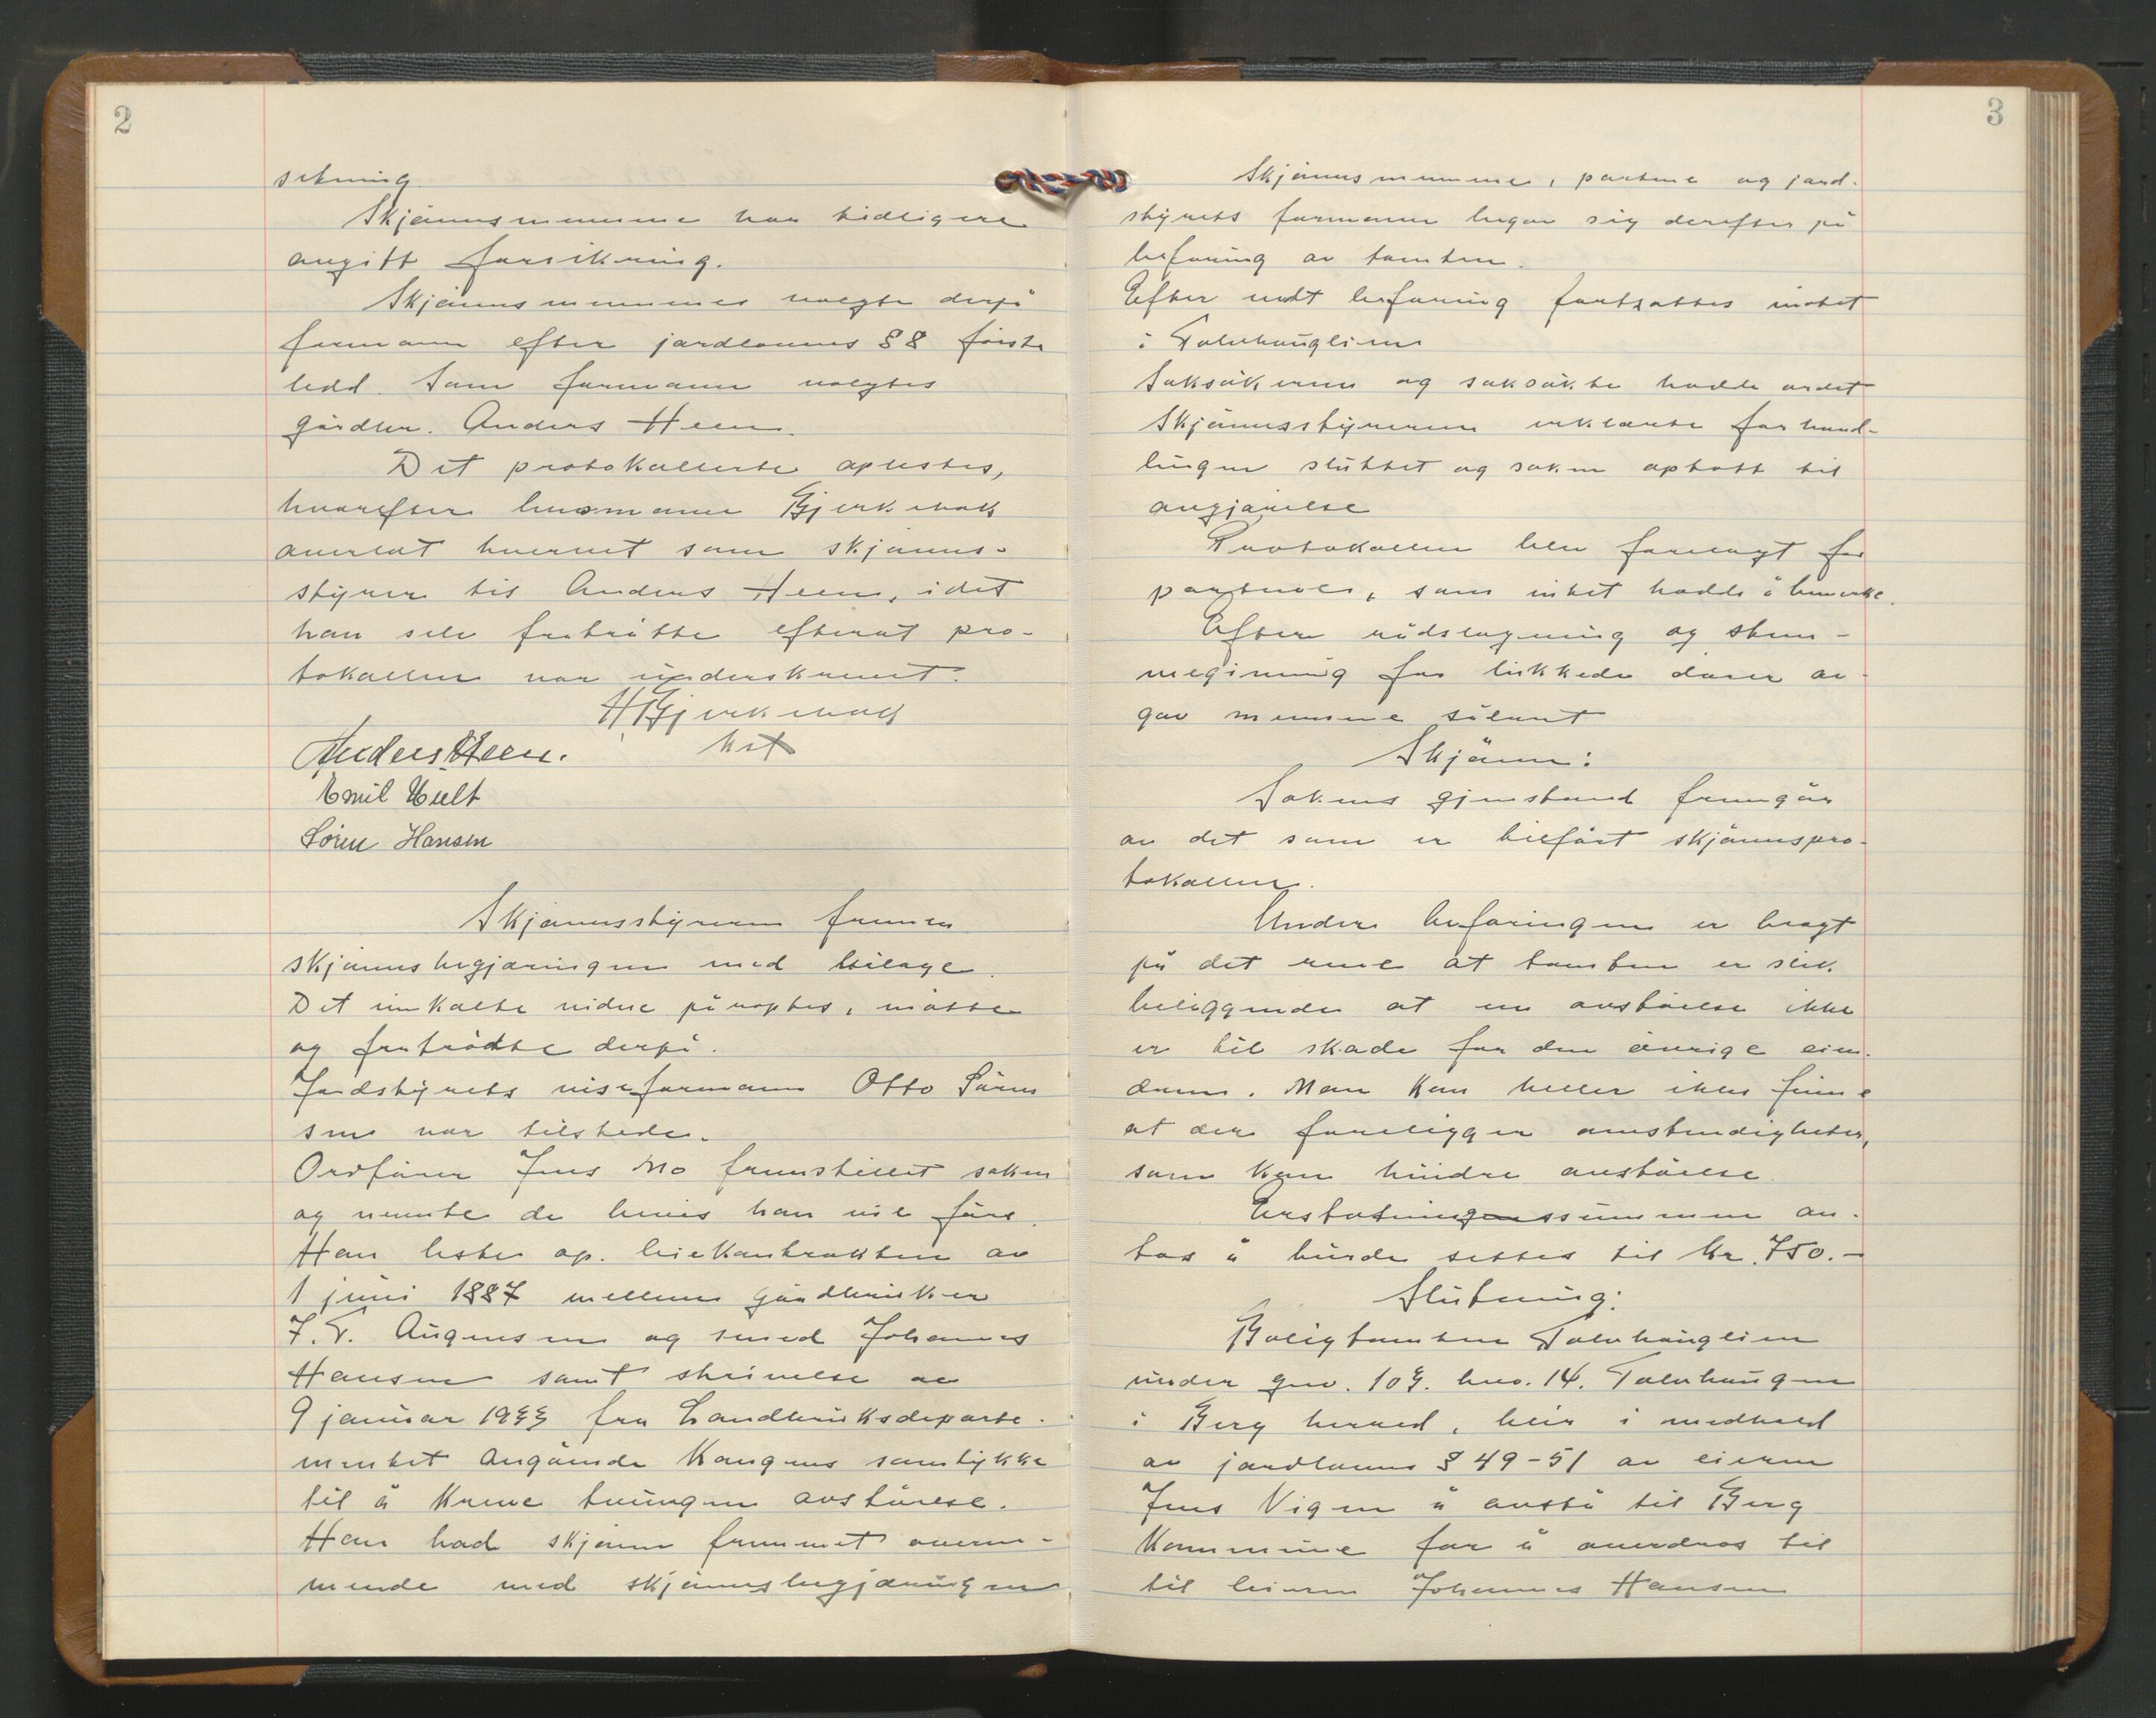 2
setning
Skjønnsmennene har tidligere
avgitt forsikring.
Skjønnsmennene valgte derpå
formann efter jordlovens § 8 første
ledd. Som formann valgtes
gårdbr. Anders Heen.
Det protokollerte oplestes,
hvorefter lensmann Bjerkebæk
overlot hvervet som skjønns-
styrer til Anders Heen, idet
han selv fratrådte efterat pro-
tokollen var underskrevet.
H Bjerkebæk
Anders Heen.
Emil Hult
Søren Hansen
Skjønnsstyreren fremla
skjønnsbegjæringen med bilage.
Det innkalte vidne påroptes, møtte
og fratrådte derpå.
Jordstyrets viseformann Otto Søren
sen var tilstede.
Ordfører Jens Mo fremstillet saken
og nevnte de bevis han vil føre.
Han leste op leiekontrakten av
1 juni 1887 mellem gårdbruker
J. T. Augensen og smed Johannes
Hansen samt skrivelse av
9 januar 1933 fra Landbruksdeparte-
mentet angående Kongens samtykke
til å kreve tvungen avståelse.
Han bad skjønn fremmet overens-
mende med skjønnsbegjæringen
3
Skjønnsmennene, partene og jord-
styrets formann begav sig derefter på
befaring av tomten.
Efter endt befaring fortsattes møtet
i Tolvhauglien
Saksøkeren og saksøkte hadde ordet
Skjønnsstyreren erklærte forhand-
lingen sluttet og saken optatt til
avgjørelse
Protokollen blev forelagt for
partene, som intet hadde å bemerke.
Efter rådslagning og stem-
megivning for lukkede dører av-
gav mennene sålunt
Skjønn:
Sakens gjenstand fremgår
av det som er tilført skjønnspro-
tokollen.
Under befaringen er bragt
på det rene at tomten er slik
beliggende at en avståelse ikke
er til skade for den øvrige eien-
dom. Man kan heller ikke finne
at der foreligger omstendigheter,
som kan hindre avståelse.
Erstatningssummen an-
tas å burde settes til kr. 750.-
Slutning:
Boligtomten Tolvhauglien
under gnr. 103. bnr. 14. Tolvhaugen
i Berg herred, blir i medhold
av jordlovens § 49-51 av eieren
Jens Vigen å avstå til Berg
Kommune for å overdras til
til leieren Johannes Hansen